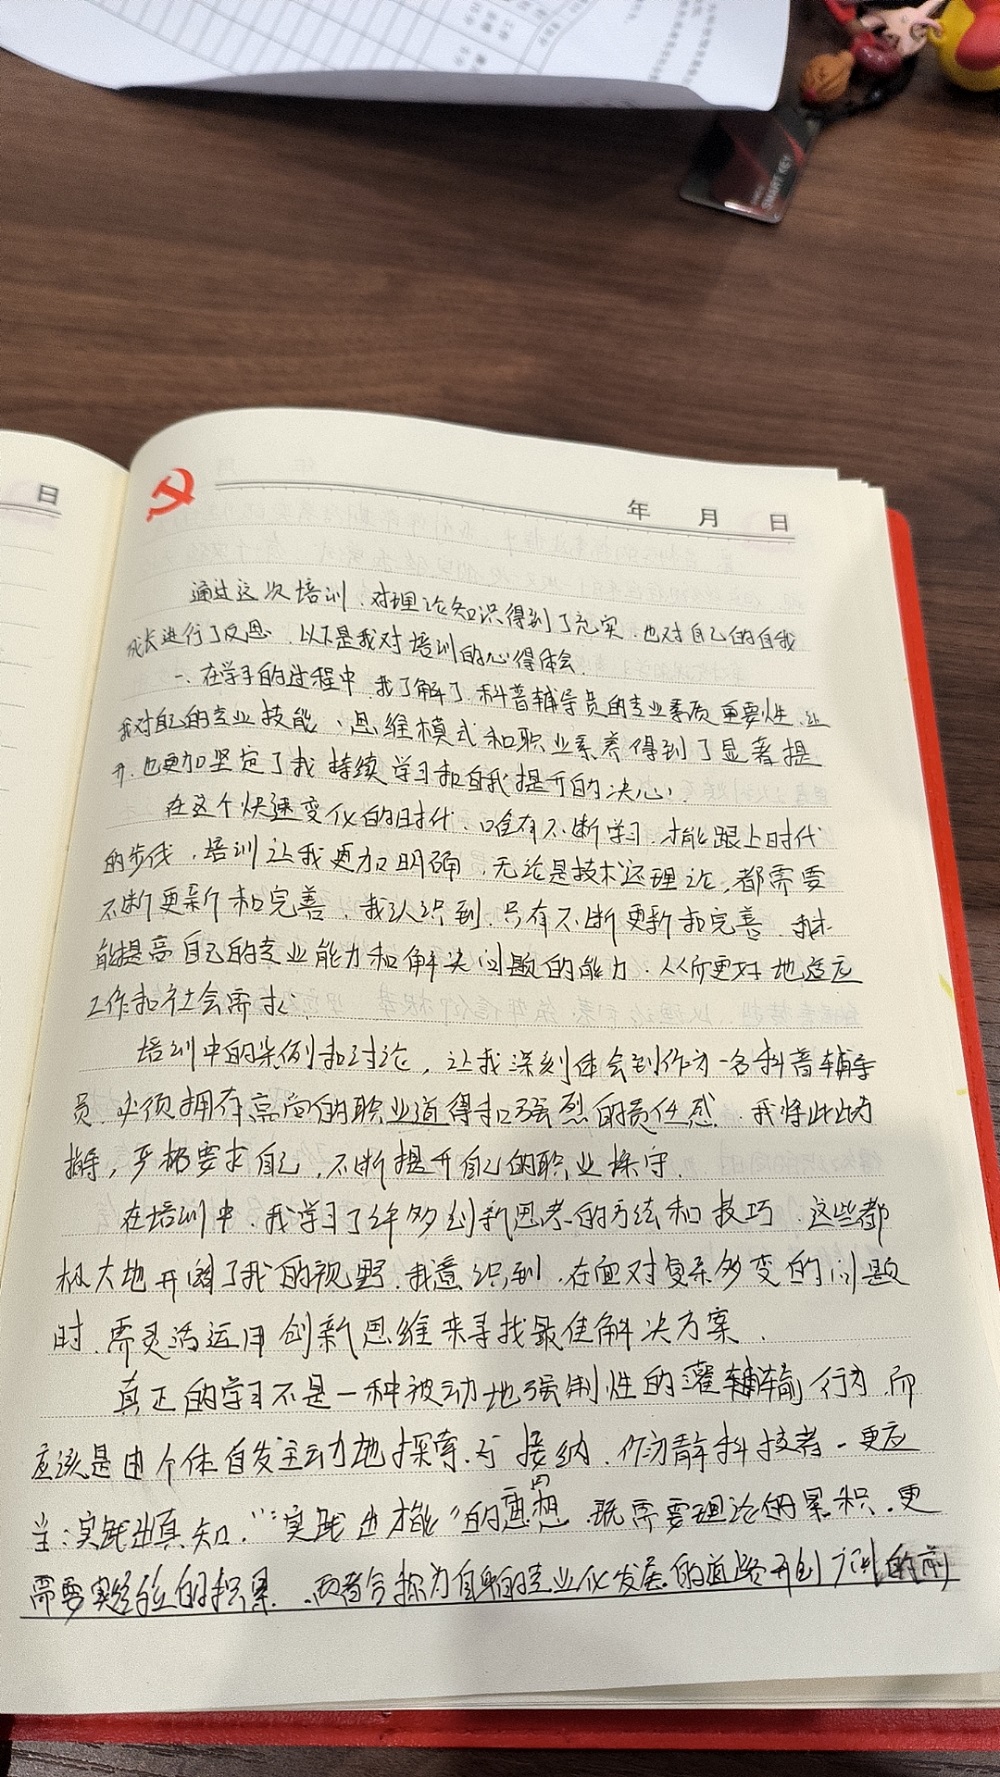 日
年 月 日
SMART KEY
通过这次培训、对理论知识得到了充实、也对自己的自我
成长进行了反思、以下是我对培训的心得体会.
一、在学习的过程中 我了解了 科普辅导员的专业素质重要性、让
我对自己的专业技能、思维模式和职业素养得到了显著提
升、也更加坚定了我持续学习和自我提升的决心.
在这个快速变化的时代、唯有不断学习、才能跟上时代
的步伐、培训让我更加明确、无论是技术还理论,都需要
不断更新和完善、我认识到、只有不断更新和完善、我才
能提高自己的专业能力和解决问题的能力、从而更好地适应
工作和社会需求.
培训中的案例和讨论,让我深刻体会到作为一名科普辅导
员、必须拥有高尚的职业道得和强烈的责任感、我将此为
,严格要求自己,不断提升自己的职业操守.
在培训中、我学习了许多创新思考的方法和技巧、这些都
极大地开阔了我的视野、我意识到、在面对复杂多变的问题
时、需灵活运用创新思维来寻找最佳解决方案.
真正的学习不是一种被动地强制性的灌输行为、而
应该是由个体自发主动地探索、与接纳、作为科技者、更应
:实践出真知、"实践出才能"的思想、既需要理论的累积、更
需要实经验的积累、两者合称为自身的专业化发展的道路开创 的前